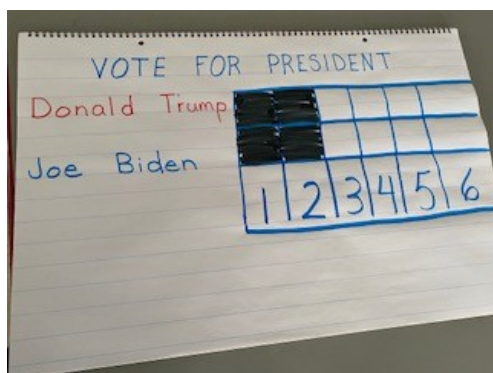 VOTE FOR PRESIDENT
Donald Trump
Joe Biden
1 2 3 4 5 6